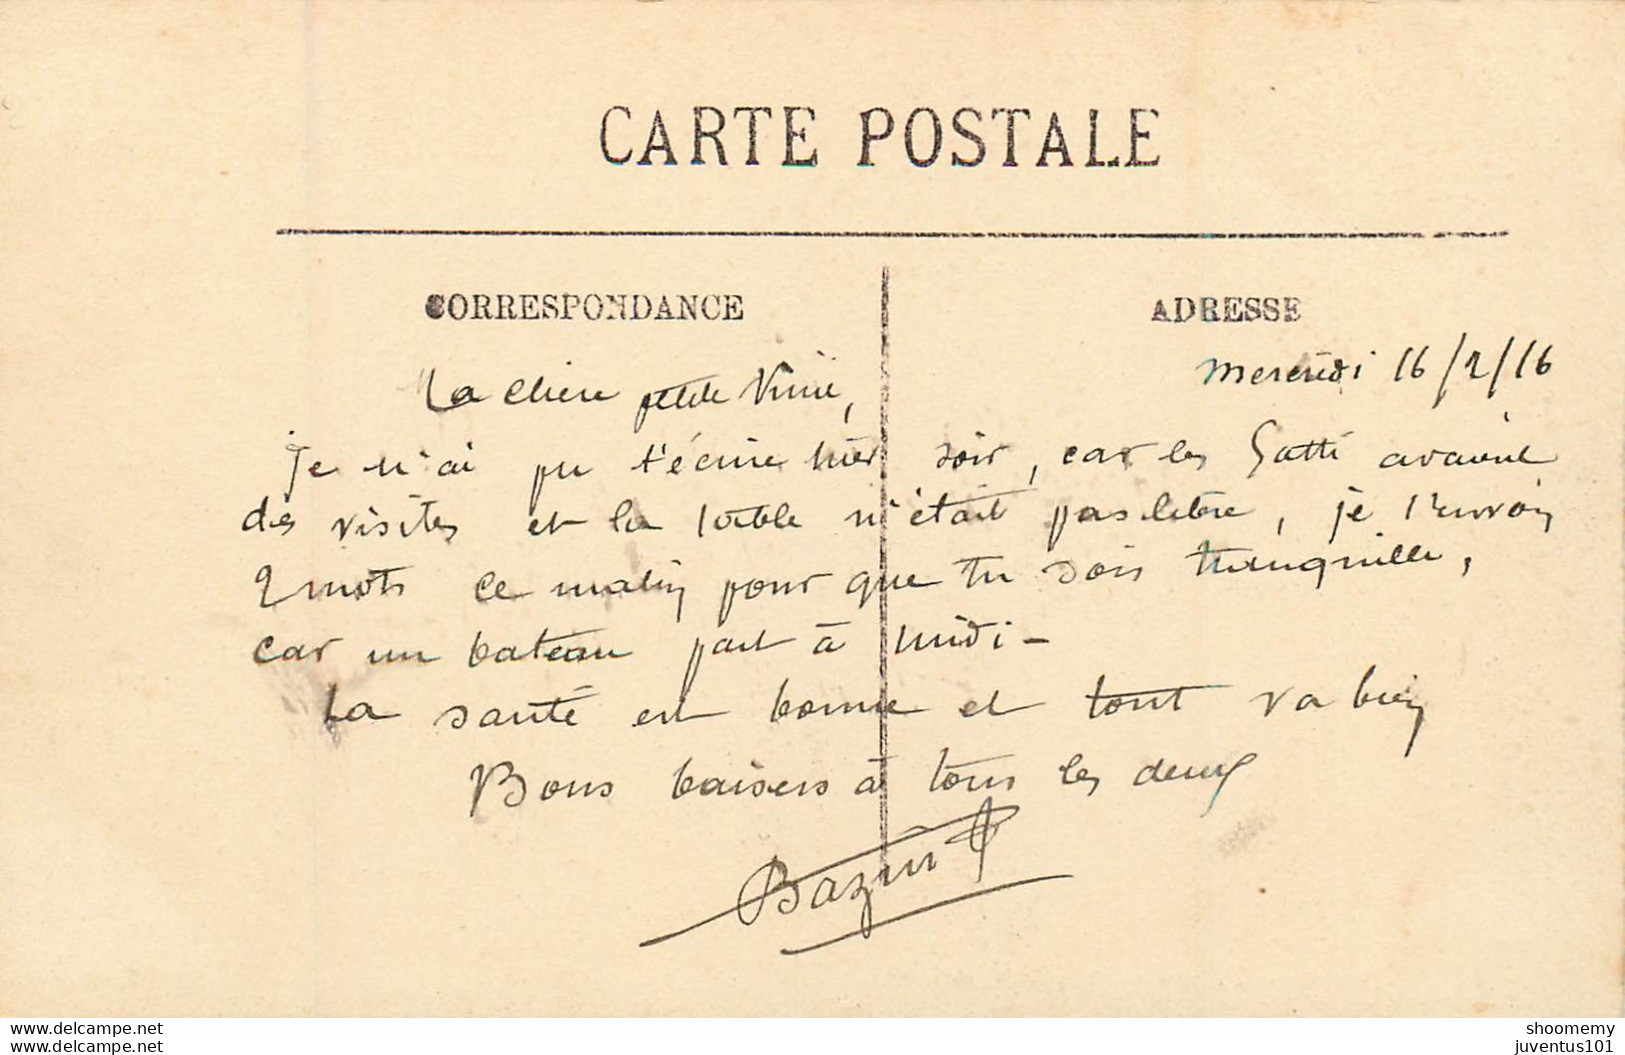 CARTE POSTALE
CORRESPONDANCE
ADRESSE
Mercredi 16/2/16
Ma chère petite
Je n'ai pu t'écrire hier soir, car les Gatti avaient
des visites et la table n'était pas libre, je t'envoie
2 mots ce matin pour que tu sois tranquille,
car un bateau part à midi -
La santé est bonne et tout va bien
Bons baisers à tous les deux
Bazin
www.delcampe.net
www.delcampe.net
shoomemy
juventus101